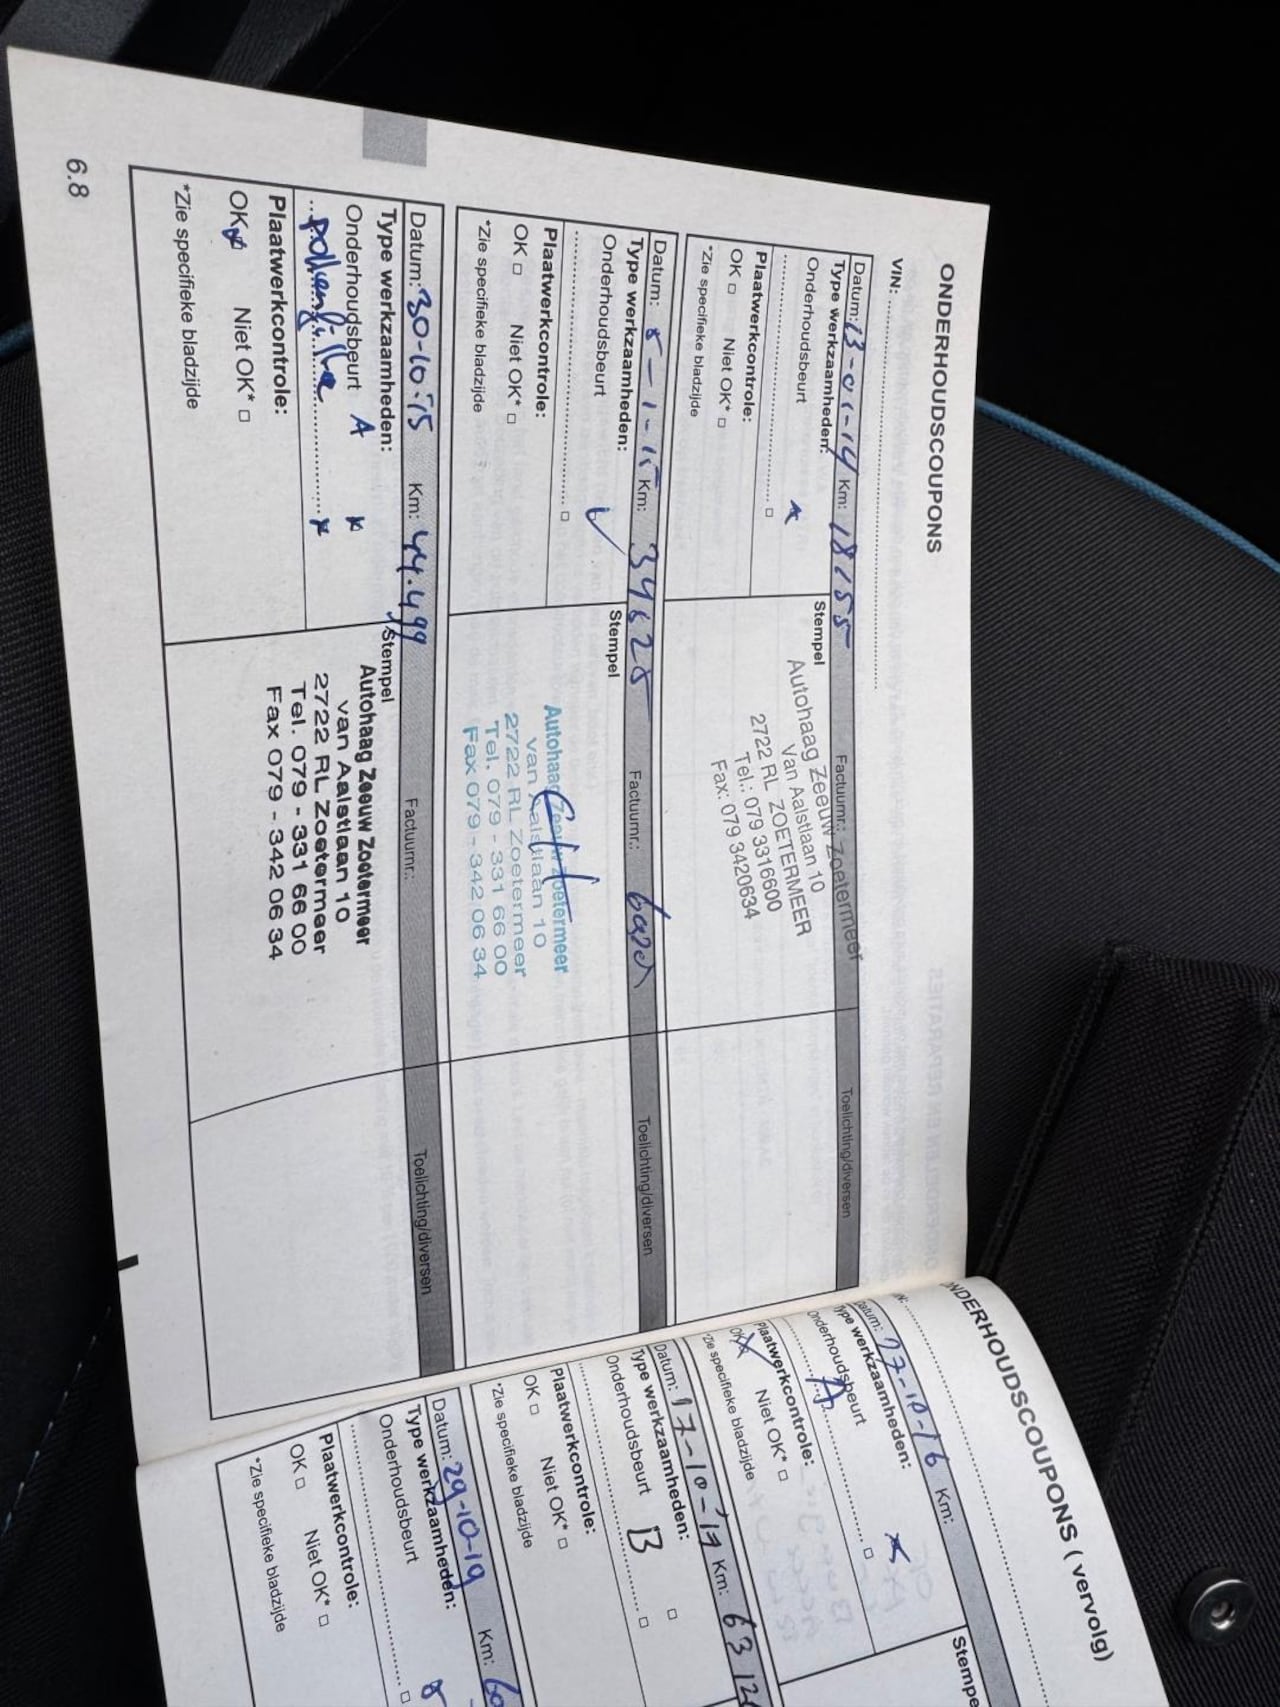 ONDERHOUDSCOUPONS
VIN:
Datum: 13-01-14 Km: 18155 Factuurnr.: Toelichting/diversen
Type werkzaamheden:
Onderhoudsbeurt
Stempel
Autohaag Zeeuw Zoetermeer
Van Aalstlaan 10
2722 RL ZOETERMEER
Tel.: 079 3316600
Fax: 079 3420634
Plaatwerkcontrole:
OK Niet OK*
*Zie specifieke bladzijde
Datum: 8-1-15 Km: 34628 Factuurnr.: Toelichting/diversen
Type werkzaamheden:
Onderhoudsbeurt
Stempel
Autohaag Zeeuw Zoetermeer
van Aalstlaan 10
2722 RL Zoetermeer
Tel. 079 - 331 66 00
Fax 079 - 342 06 34
Plaatwerkcontrole:
OK Niet OK*
*Zie specifieke bladzijde
Datum: 30-10-15 Km: 44.499 Factuurnr.: Toelichting/diversen
Type werkzaamheden:
Onderhoudsbeurt A
pollenfilter
Stempel
Autohaag Zeeuw Zoetermeer
van Aalstlaan 10
2722 RL Zoetermeer
Tel. 079 - 331 66 00
Fax 079 - 342 06 34
Plaatwerkcontrole:
OK Niet OK*
*Zie specifieke bladzijde
6.8
ONDERHOUDSCOUPONS ( vervolg)
Datum: 17-10-16 Km:
Type werkzaamheden:
Onderhoudsbeurt
A
Stempe
Plaatwerkcontrole:
OK Niet OK*
*Zie specifieke bladzijde
Datum: 17-10-'17 Km: 63 12
Type werkzaamheden:
Onderhoudsbeurt B
Plaatwerkcontrole:
OK Niet OK*
*Zie specifieke bladzijde
Datum: 29-10-19 Km:
Type werkzaamheden:
Onderhoudsbeurt
Plaatwerkcontrole:
OK Niet OK*
*Zie specifieke bladzijde